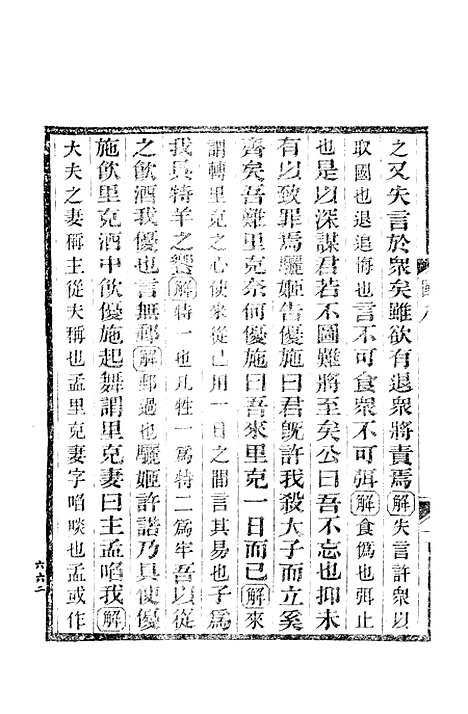 之又失言於衆矣雖欲有退衆將責焉解失言許衆以
取國也退追悔也言不可食衆不可弭解食僞也弭止
也是以深謀君若不圖難將至矣公曰吾不忘也抑未
有以致罪焉驪姬告優施曰君旣許我殺大子而立奚
齊矣吾難里克奈何優施曰吾來里克一日而已解來
謂轉里克之心使來從己用一日之閒言其易也子爲
我具特羊之饗解特一也凡牲一爲特二爲牢吾以從
之飲酒我優也言無郵解郵過也驪姬許諾乃具使優
施飲里克酒中飲優施起舞謂里克妻曰主孟啗我解
大夫之妻稱主從夫稱也孟里克妻字啗啖也孟或作
六六二